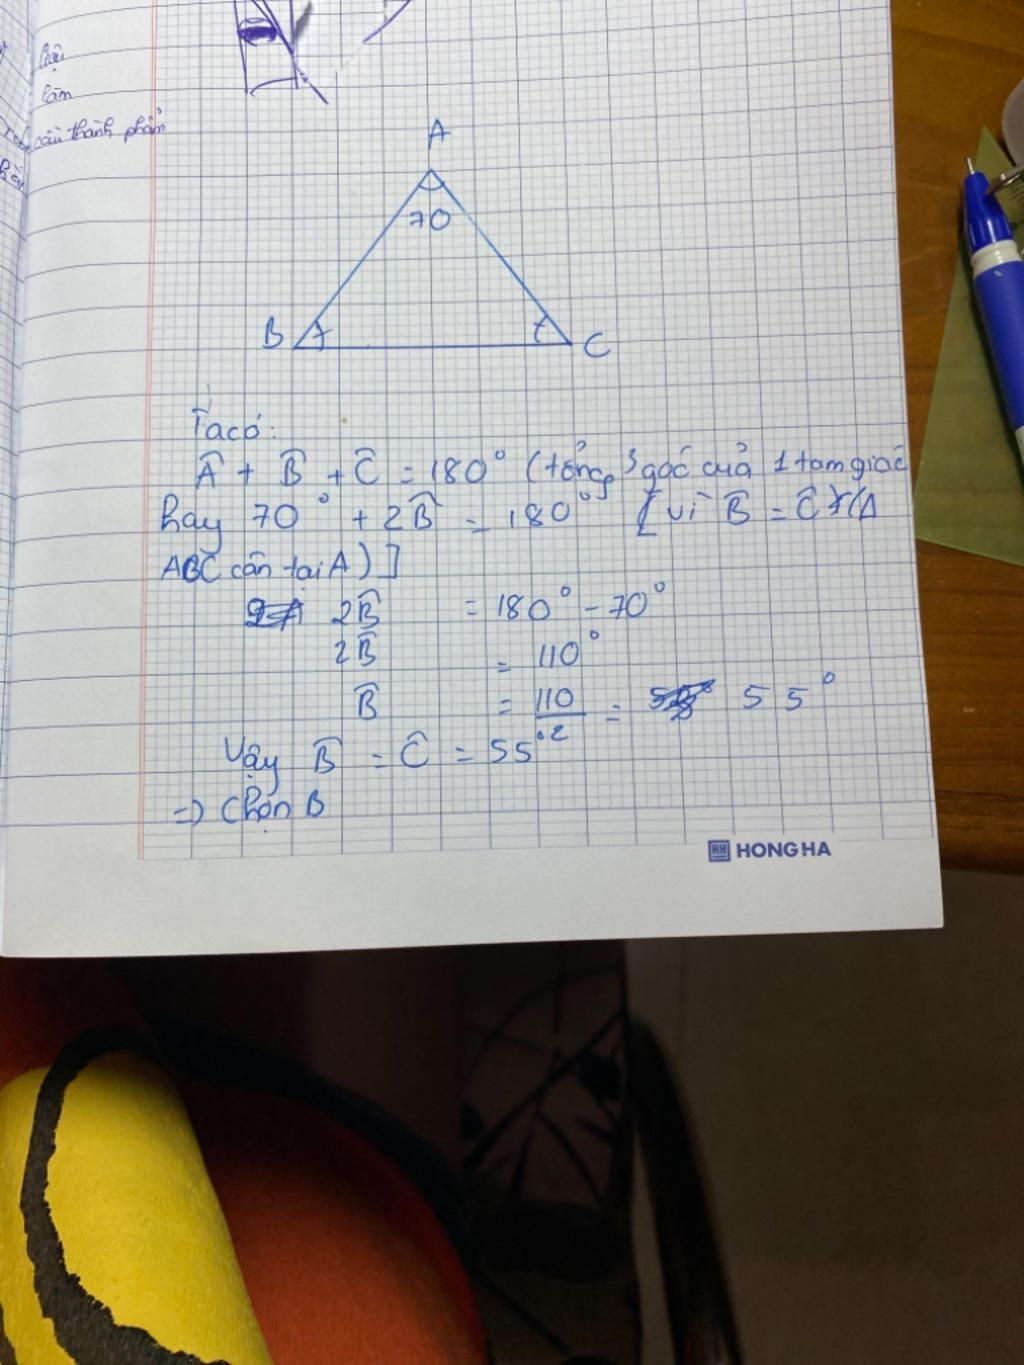 liệu
làm
cấu thành phẩm
A
70
B
C
Ta có:
Â + B̂ + Ĉ = 180° (tổng 3 góc của 1 tam giác
hay 70° + 2B̂ = 180° [vì B̂ = Ĉ (Δ
ABC cân tại A)]
2B̂ = 180° - 70°
2B̂ = 110°
B̂ = 110/2 = 55°
Vậy B̂ = Ĉ = 55°
=> Chọn B
HH HONG HA